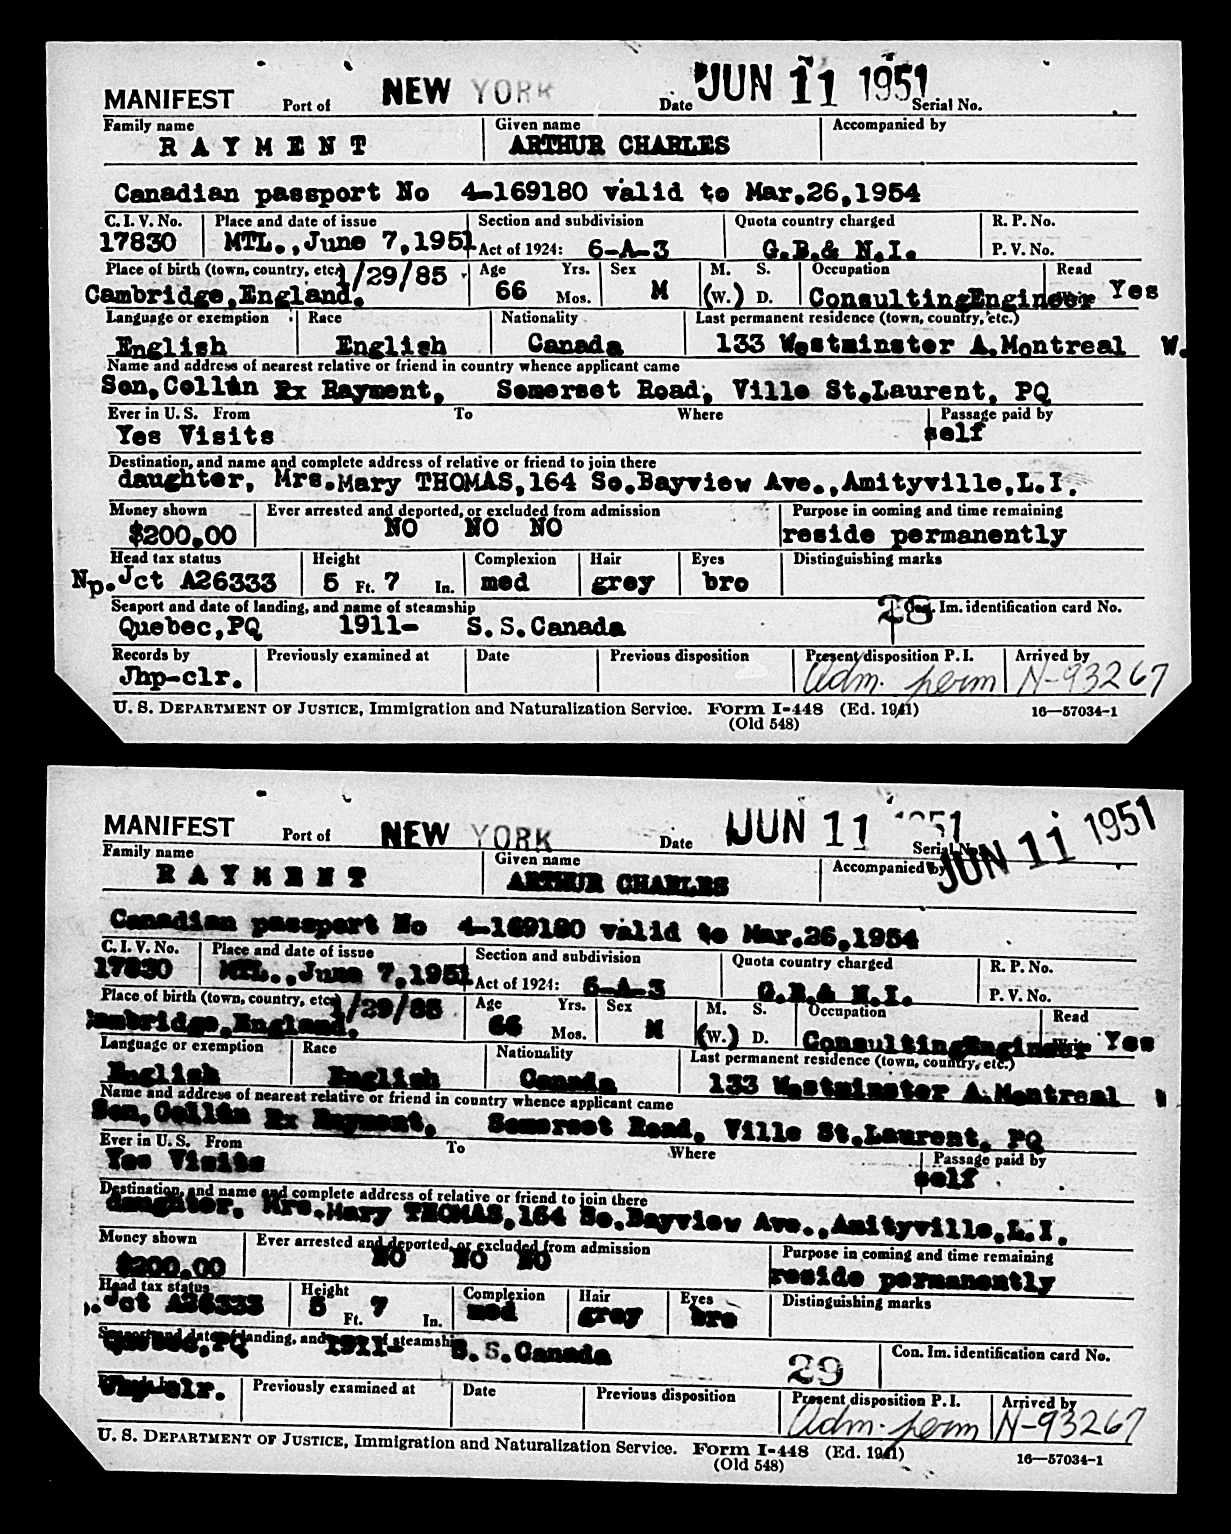 MANIFEST Port of NEW YORK Date JUN 11 1951 Serial No.
Family name Given name Accompanied by
RAYMENT ARTHUR CHARLES
Canadian passport No 4-169180 valid to Mar.26,1954
C. I. V. No. Place and date of issue Section and subdivision Quota country charged R. P. No.
17830 MTL., June 7,1951 Act of 1924: 6-A-3 G.B.& N.I. P. V. No.
Place of birth (town, country, etc.) 1/29/85 Age Yrs. Sex M. S. Occupation Read
Cambridge,England. 66 Mos. M (W.) D. ConsultingEngineer Yes
Language or exemption Race Nationality Last permanent residence (town, country, etc.)
English English Canada 133 Westminster A.Montreal W.
Name and address of nearest relative or friend in country whence applicant came
Son,Collin Rx Rayment, Somerset Road, Ville St.Laurent, PQ
Ever in U. S. From To Where Passage paid by
Yes Visits self
Destination, and name and complete address of relative or friend to join there
daughter, Mrs.Mary THOMAS,164 So.Bayview Ave.,Amityville,L.I.
Money shown Ever arrested and deported, or excluded from admission Purpose in coming and time remaining
$200.00 NO NO NO reside permanently
Head tax status Height Complexion Hair Eyes Distinguishing marks
Np.Jct A26333 5 Ft. 7 In. med grey bro
Seaport and date of landing, and name of steamship 28 Im. identification card No.
Quebec,PQ 1911- S.S.Canada
Records by Previously examined at Date Previous disposition Present disposition P. I. Arrived by
Jhp-clr. Adm. perm N-93267
U. S. DEPARTMENT OF JUSTICE, Immigration and Naturalization Service. Form I-448 (Ed. 1941) 16—57034-1
(Old 548)
MANIFEST Port of NEW YORK Date JUN 11 1951 Serial No. JUN 11 1951
Family name Given name Accompanied by
RAYMENT ARTHUR CHARLES
Canadian passport No 4-169180 valid to Mar.26,1954
C. I. V. No. Place and date of issue Section and subdivision Quota country charged R. P. No.
17830 MTL., June 7,1951 Act of 1924: 6-A-3 G.B.& N.I. P. V. No.
Place of birth (town, country, etc.) 1/29/85 Age Yrs. Sex M. S. Occupation Read
Cambridge,England. 66 Mos. M (W.) D. ConsultingEngineer Yes
Language or exemption Race Nationality Last permanent residence (town, country, etc.)
English English Canada 133 Westminster A.Montreal
Name and address of nearest relative or friend in country whence applicant came
Son,Collin Rx Rayment, Somerset Road, Ville St.Laurent, PQ
Ever in U. S. From To Where Passage paid by
Yes Visits self
Destination, and name and complete address of relative or friend to join there
daughter, Mrs.Mary THOMAS,164 So.Bayview Ave.,Amityville,L.I.
Money shown Ever arrested and deported, or excluded from admission Purpose in coming and time remaining
$200.00 NO NO NO reside permanently
Head tax status Height Complexion Hair Eyes Distinguishing marks
.Jct A26333 5 Ft. 7 In. med grey bro
Seaport and date of landing, and name of steamship Con. Im. identification card No.
Quebec,PQ 1911- S.S.Canada 29
Previously examined at Date Previous disposition Present disposition P. I. Arrived by
Jhp-clr. Adm. perm N-93267
U. S. DEPARTMENT OF JUSTICE, Immigration and Naturalization Service. Form I-448 (Ed. 1941) 16—57034-1
(Old 548)